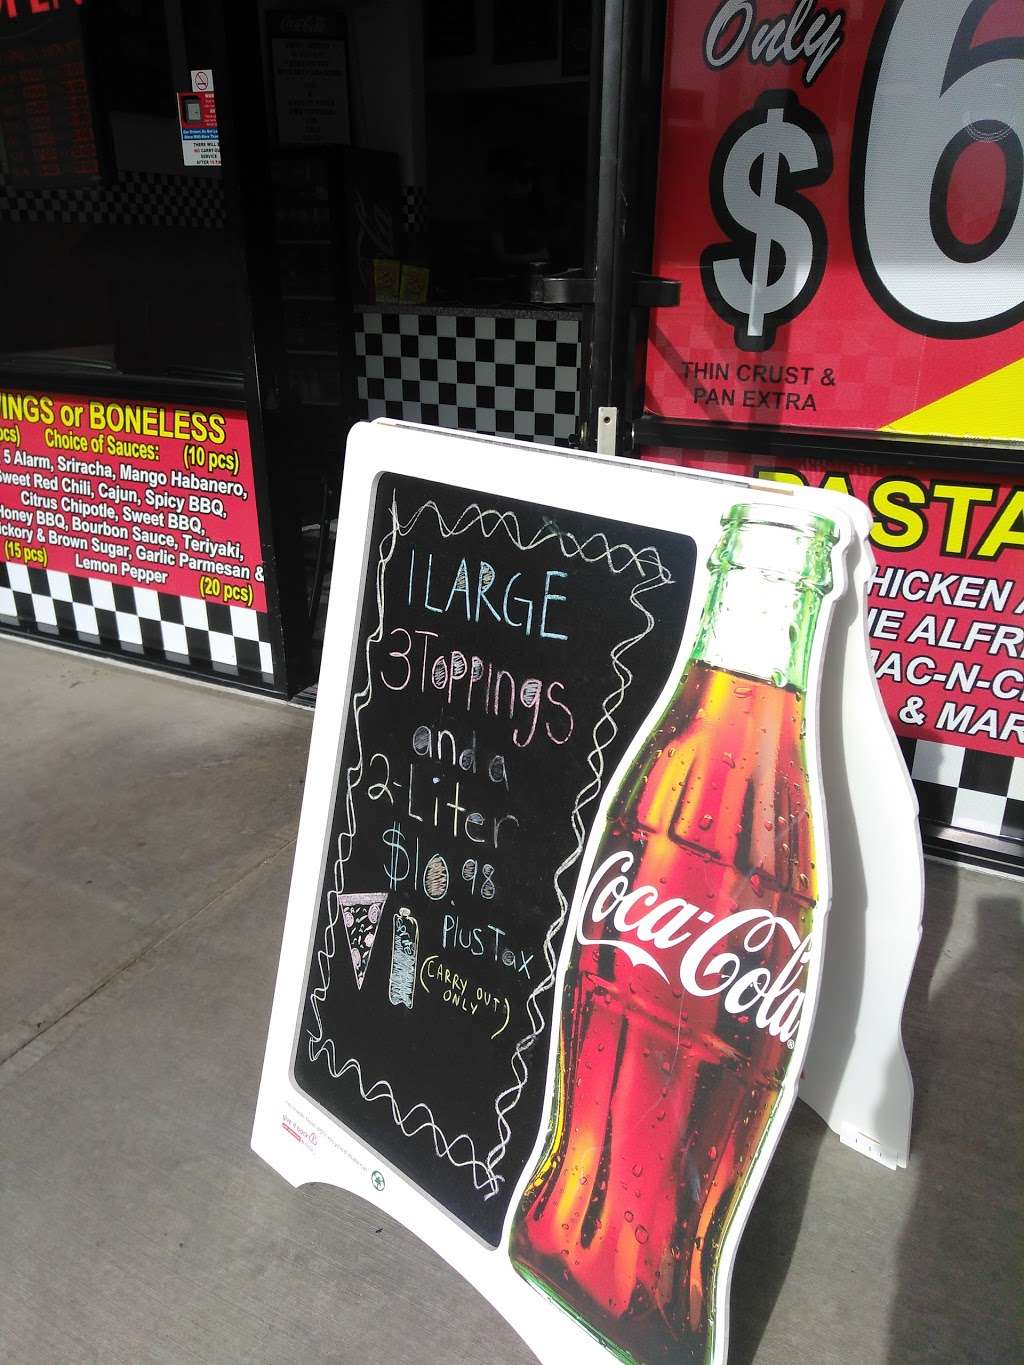 Only
$6
THIN CRUST &
PAN EXTRA
WINGS or BONELESS
Choice of Sauces: (10 pcs)
5 Alarm, Sriracha, Mango Habanero,
Sweet Red Chili, Cajun, Spicy BBQ,
Citrus Chipotle, Sweet BBQ,
Honey BBQ, Bourbon Sauce, Teriyaki,
Hickory & Brown Sugar, Garlic Parmesan &
(15 pcs) Lemon Pepper (20 pcs)
1 LARGE
3 TOppings
and a
2-Liter
$10.98
Plus Tax
(CARRY OUT
ONLY)
Coca-Cola
PASTA
CHICKEN A
ALFR
MAC-N-C
& MAR
give it back